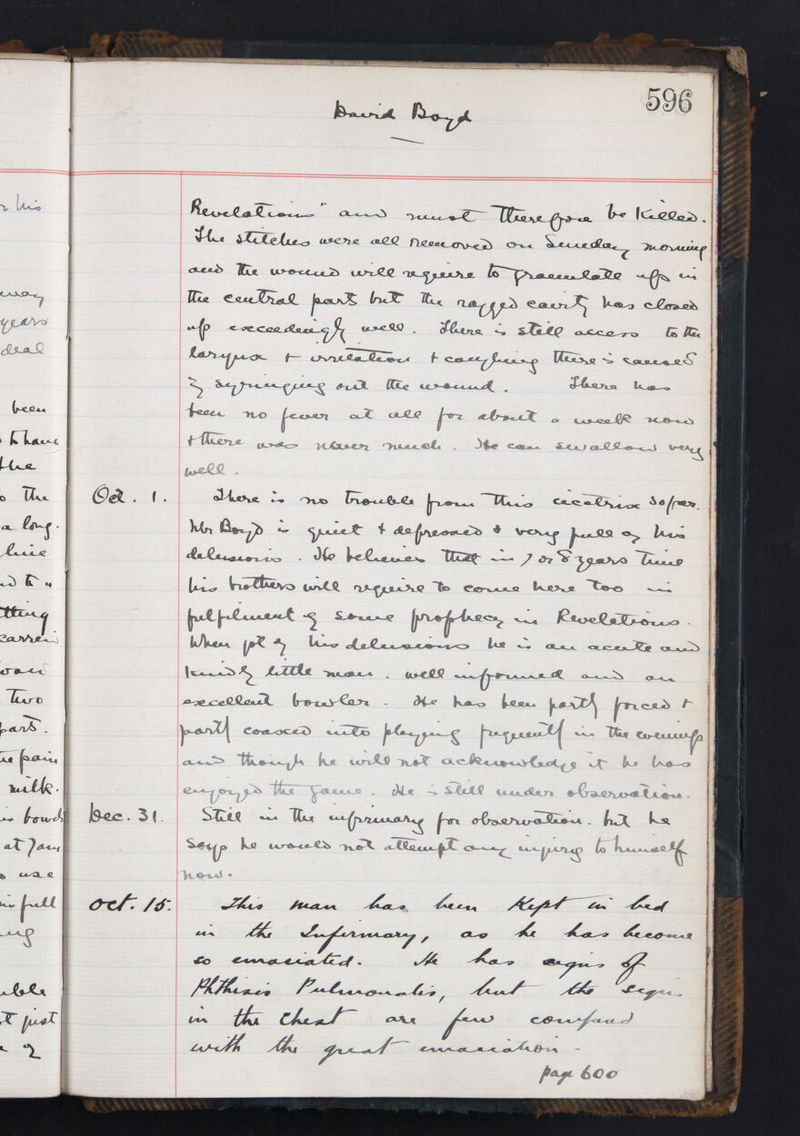 596
David Boyd
Revelations" and must therefore be Killed.
The stitches were all removed on Sunday morning
and the wound will require to granulate up in
the central part but the ragged cavity has closed
up exceedingly well. There is still access to the
larynx & irritation & coughing there is caused
by syringing out the wound. There has
been no fever at all for about a week now
& there was never much. He can swallow very
well.
Oct. 1. There is no trouble from this cicatrix so far.
Mr Boyd is quiet & depressed & very full of his
delusions. He believes that in 7 or 8 years time
his brothers will require to come here too in
fulfilment of some prophecy in Revelations.
When got of his delusions he is an acute and
kindly little man. well informed and an
excellent bowler. He has been partly forced &
partly coaxed into playing frequently in the evenings
and though he will not acknowledge it he has
enjoyed the game. He is still under observation.
Dec. 31. Still in the infirmary for observation. but he
says he would not attempt any injury to himself
now.
Oct. 15. This man has been Kept in bed
in the Infirmary, as he has become
so emaciated. He has signs of
Phthisis Pulmonalis, but the signs
in the Chest are few compared
with the great emaciation.
page 600
his
way
years
deal
been
to have
the
the
a long.
line
Two
part.
pain
milk.
bowels
at 7am
use
full
just
of